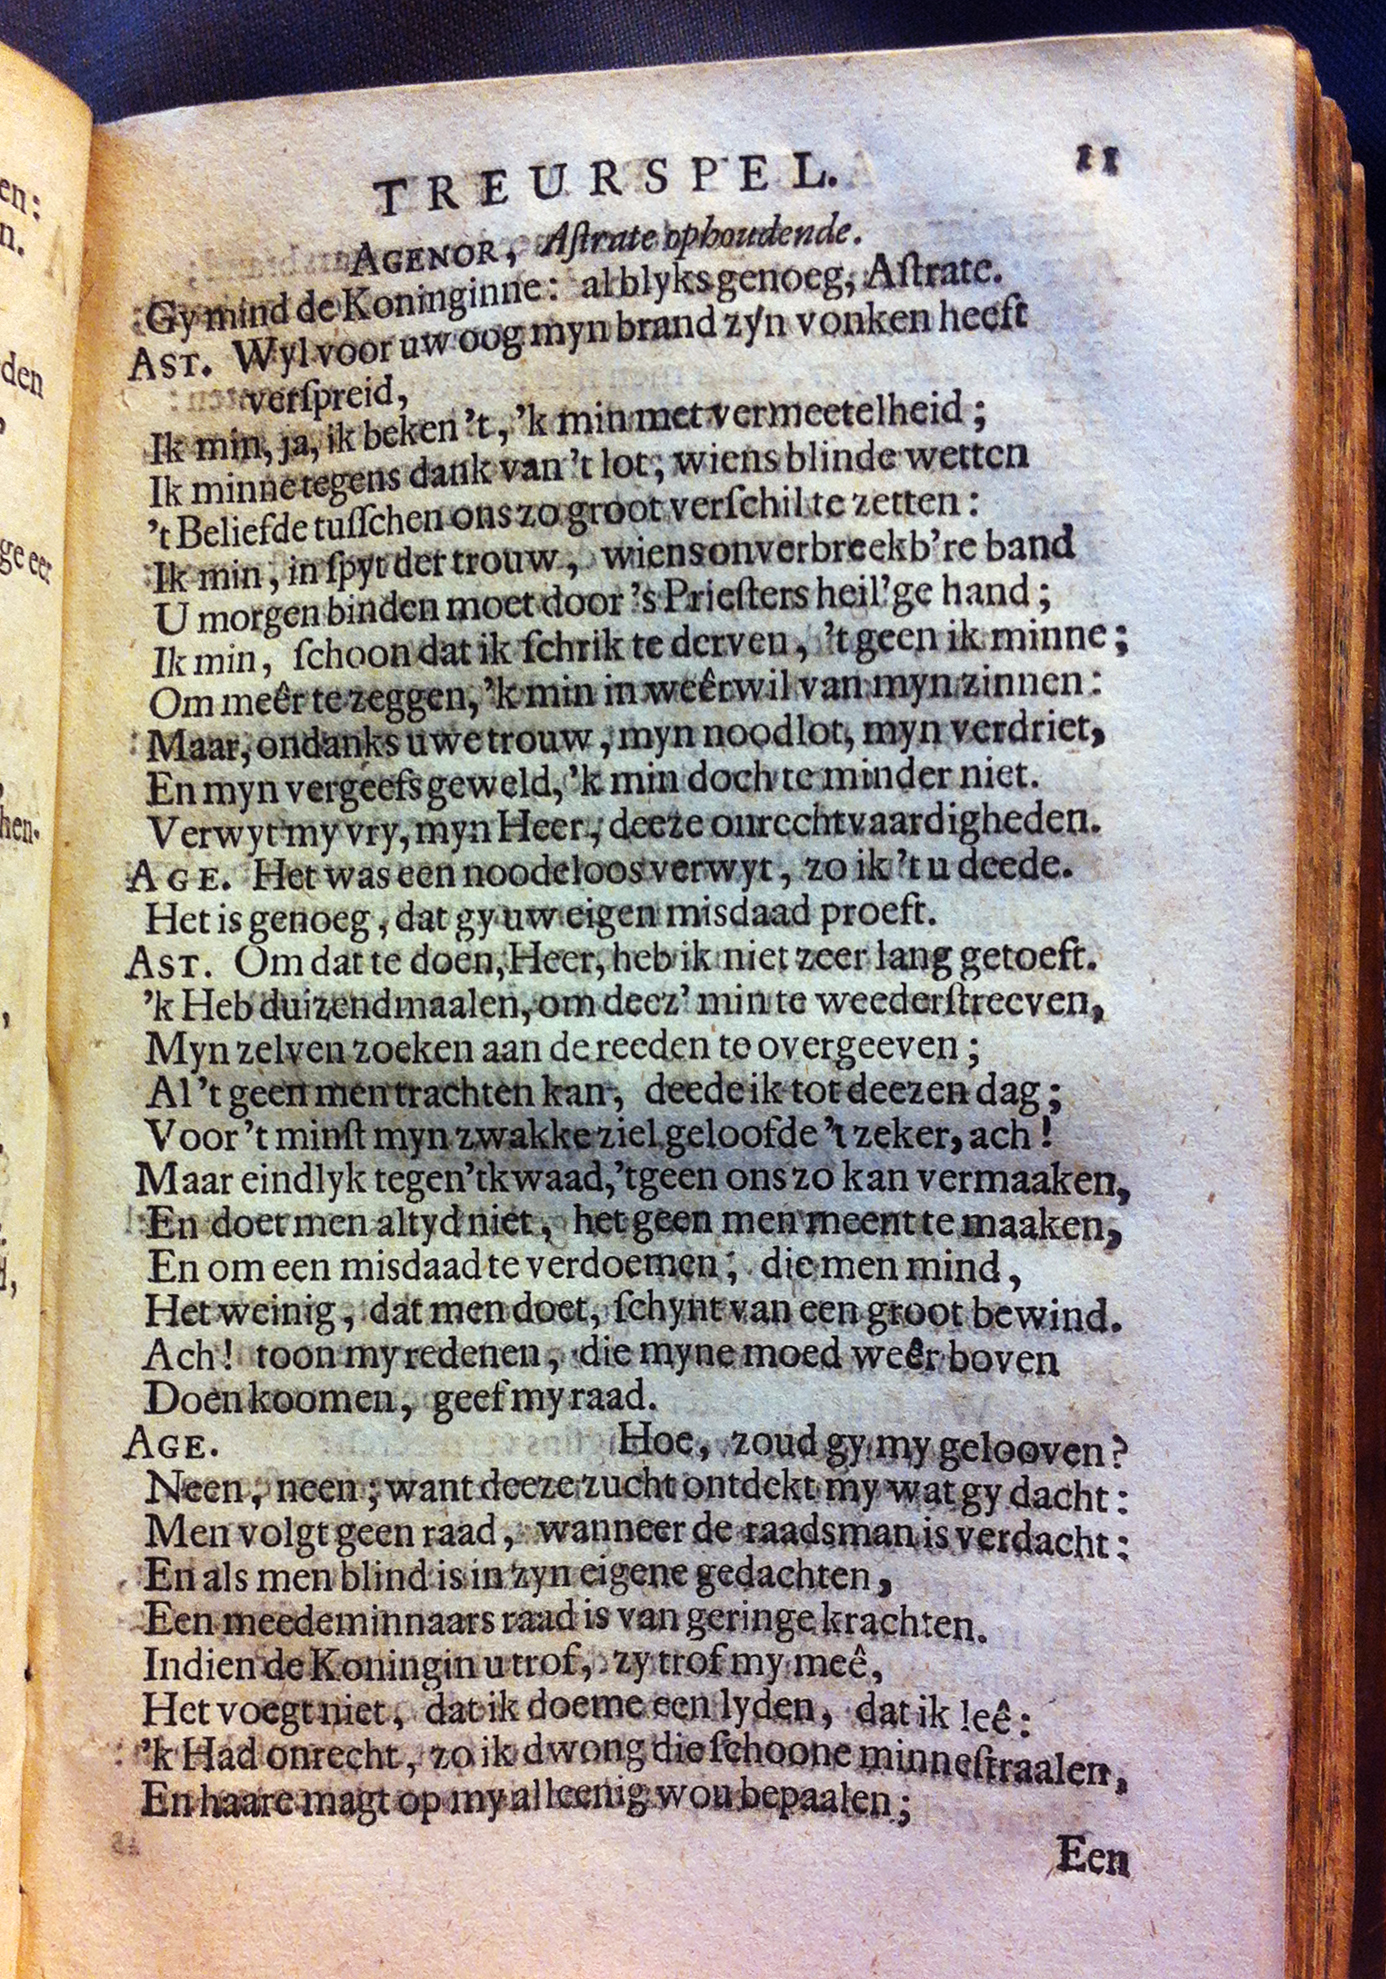 TREURSPEL. 11
AGENOR, Aſtrate ophoudende.
Gy mind de Koninginne: al blyks genoeg, Aſtrate.
AST. Wyl voor uw oog myn brand zyn vonken heeft
verſpreid,
Ik min, ja, ik beken 't, 'k min met vermeetelheid;
Ik minne tegens dank van 't lot, wiens blinde wetten
't Beliefde tuſſchen ons zo groot verſchil te zetten:
Ik min, in ſpyt der trouw, wiens onverbreekb're band
U morgen binden moet door 's Prieſters heil'ge hand;
Ik min, ſchoon dat ik ſchrik te derven, 't geen ik minne;
Om meêr te zeggen, 'k min in weêrwil van myn zinnen:
Maar, ondanks uwe trouw, myn noodlot, myn verdriet,
En myn vergeefs geweld, 'k min doch te minder niet.
Verwyt my vry, myn Heer, deeze onrechtvaardigheden.
AGE. Het was een noodeloos verwyt, zo ik 't u deede.
Het is genoeg, dat gy uw eigen misdaad proeft.
AST. Om dat te doen, Heer, heb ik niet zeer lang getoeft.
'k Heb duizendmaalen, om deez' min te weederſtreeven,
Myn zelven zoeken aan de reeden te overgeeven;
Al 't geen men trachten kan, deede ik tot deezen dag;
Voor 't minſt myn zwakke ziel geloofde 't zeker, ach!
Maar eindlyk tegen 't kwaad, 't geen ons zo kan vermaaken,
En doet men altyd niet, het geen men meent te maaken,
En om een misdaad te verdoemen, die men mind,
Het weinig, dat men doet, ſchynt van een groot bewind.
Ach! toon my redenen, die myne moed weêr boven
Doen koomen, geef my raad.
AGE. Hoe, zoud gy my gelooven?
Neen, neen; want deeze zucht ontdekt my wat gy dacht:
Men volgt geen raad, wanneer de raadsman is verdacht:
En als men blind is in zyn eigene gedachten,
Een meedeminnaars raad is van geringe krachten.
Indien de Koningin u trof, zy trof my meê,
Het voegt niet, dat ik doeme een lyden, dat ik leê:
'k Had onrecht, zo ik dwong die ſchoone minneſtraalen,
En haare magt op my alleenig wou bepaalen;
Een